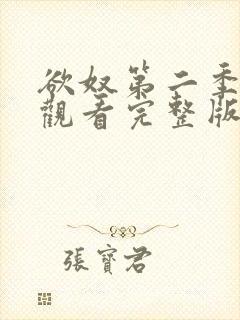 欲奴第二季
觀看完整版
張寶君